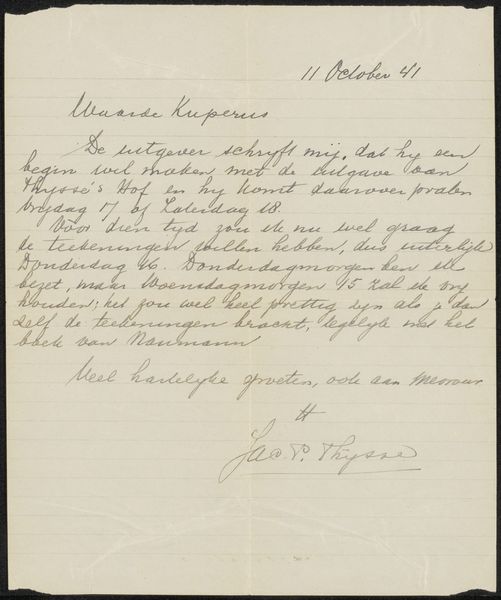 11 October 41
Waarde Kuperus
De uitgever schrijft mij, dat hij een
begin wil maken met de uitgave van
Thijsse's Hof en hij komt daarover praten
Vrijdag 17 of Zaterdag 18.
Vóór dien tijd zou ik nu wel graag
de teekeningen willen hebben, dus uiterlijk
Donderdag 16. Donderdagmorgen ben ik
bezet, maar Woensdagmorgen 15 zal ik vrij
houden; het zou wel heel prettig zijn als je dan
zelf de teekeningen bracht, tegelijk met het
boek van Naumann
Veel hartelijke groeten, ook aan Mevrouw
tt
Jac. P. Thijsse